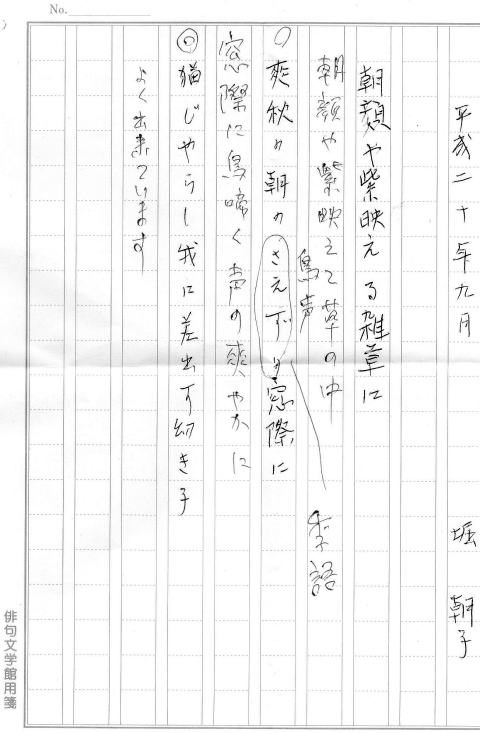 No.
平成二十年九月
堀 朝子
朝顔や紫映える雑草に
朝顔や紫映えて草の中
鳥声
季語
○爽秋の朝のさえずり窓際に
窓際に鳥啼く声の爽やかに
◎猫じゃらし我に差出す幼き子
よく出来ています
俳句文学館用箋